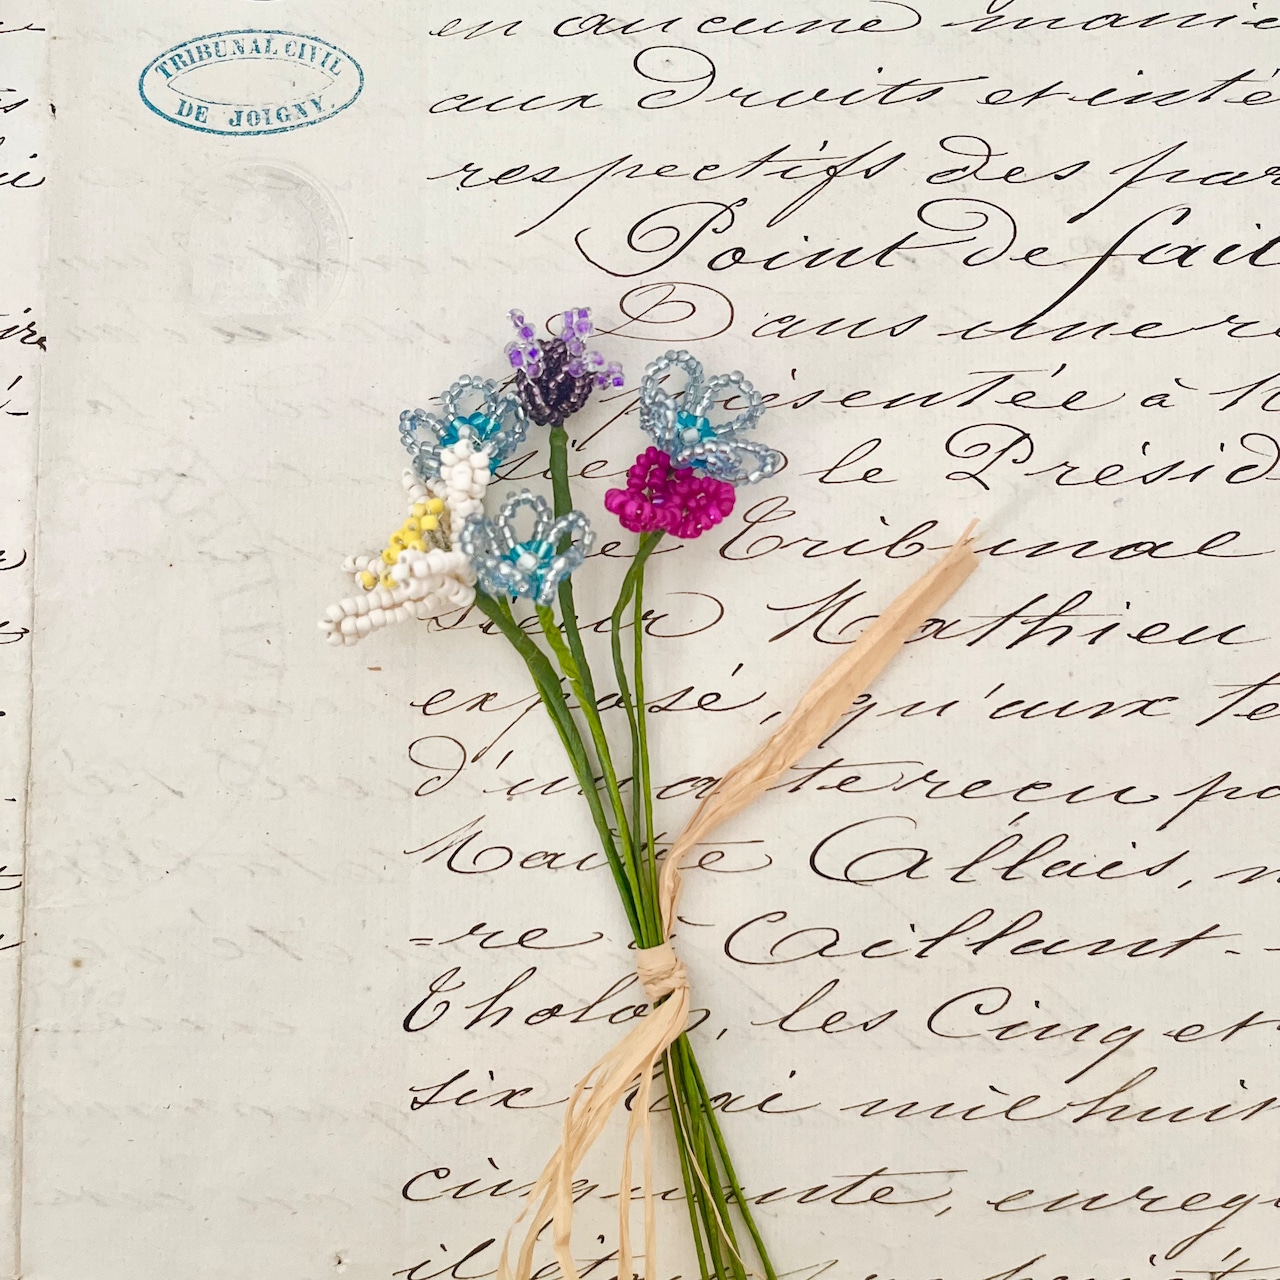 TRIBUNAL CIVIL
DE JOIGNY
en aucune maniè
aux Droits et inté
respectifs des par
Point de fait
Dans une re
présentée à M
le Présid
Tribunal
sieur Mathieu
exposé, qu'aux te
d'un acte reçu pa
Maître Allais, n
=re à Aillant-
Tholon, les Cinq et
six Mai mil huit
cinquante, enreg
il